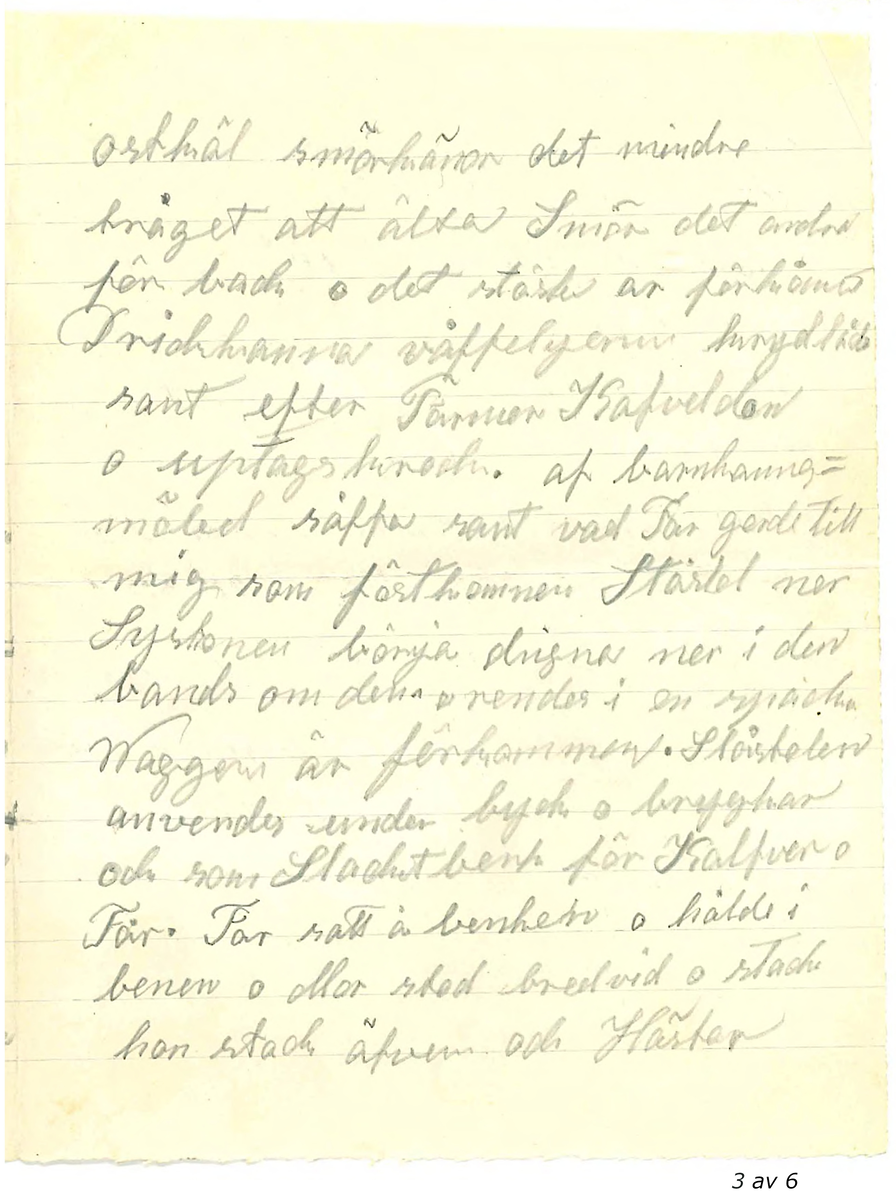 ostkäl smörkänor det mindre
tråget att älta Smör det andra
för back o det störk ar förkomn
Drickkanna våffelyern krydlåd
samt efter Farmor Kafveldon
o uptagskrock. af barnkanna=
måled såffa samt vad Far gorde till
mig som försthommen Stäslel ner
Syskonen börja dugna ner i den
bands om den o vendes i en späcka
Waggen är förkommen. Slåstolen
anvendes under byck o brygkar
och som Slacktbenk för Kalfver o
Får. Far satt å benken o hålde i
benen o Mor stod bredvid o stack
hon stack äfven och Hästar
3 av 6